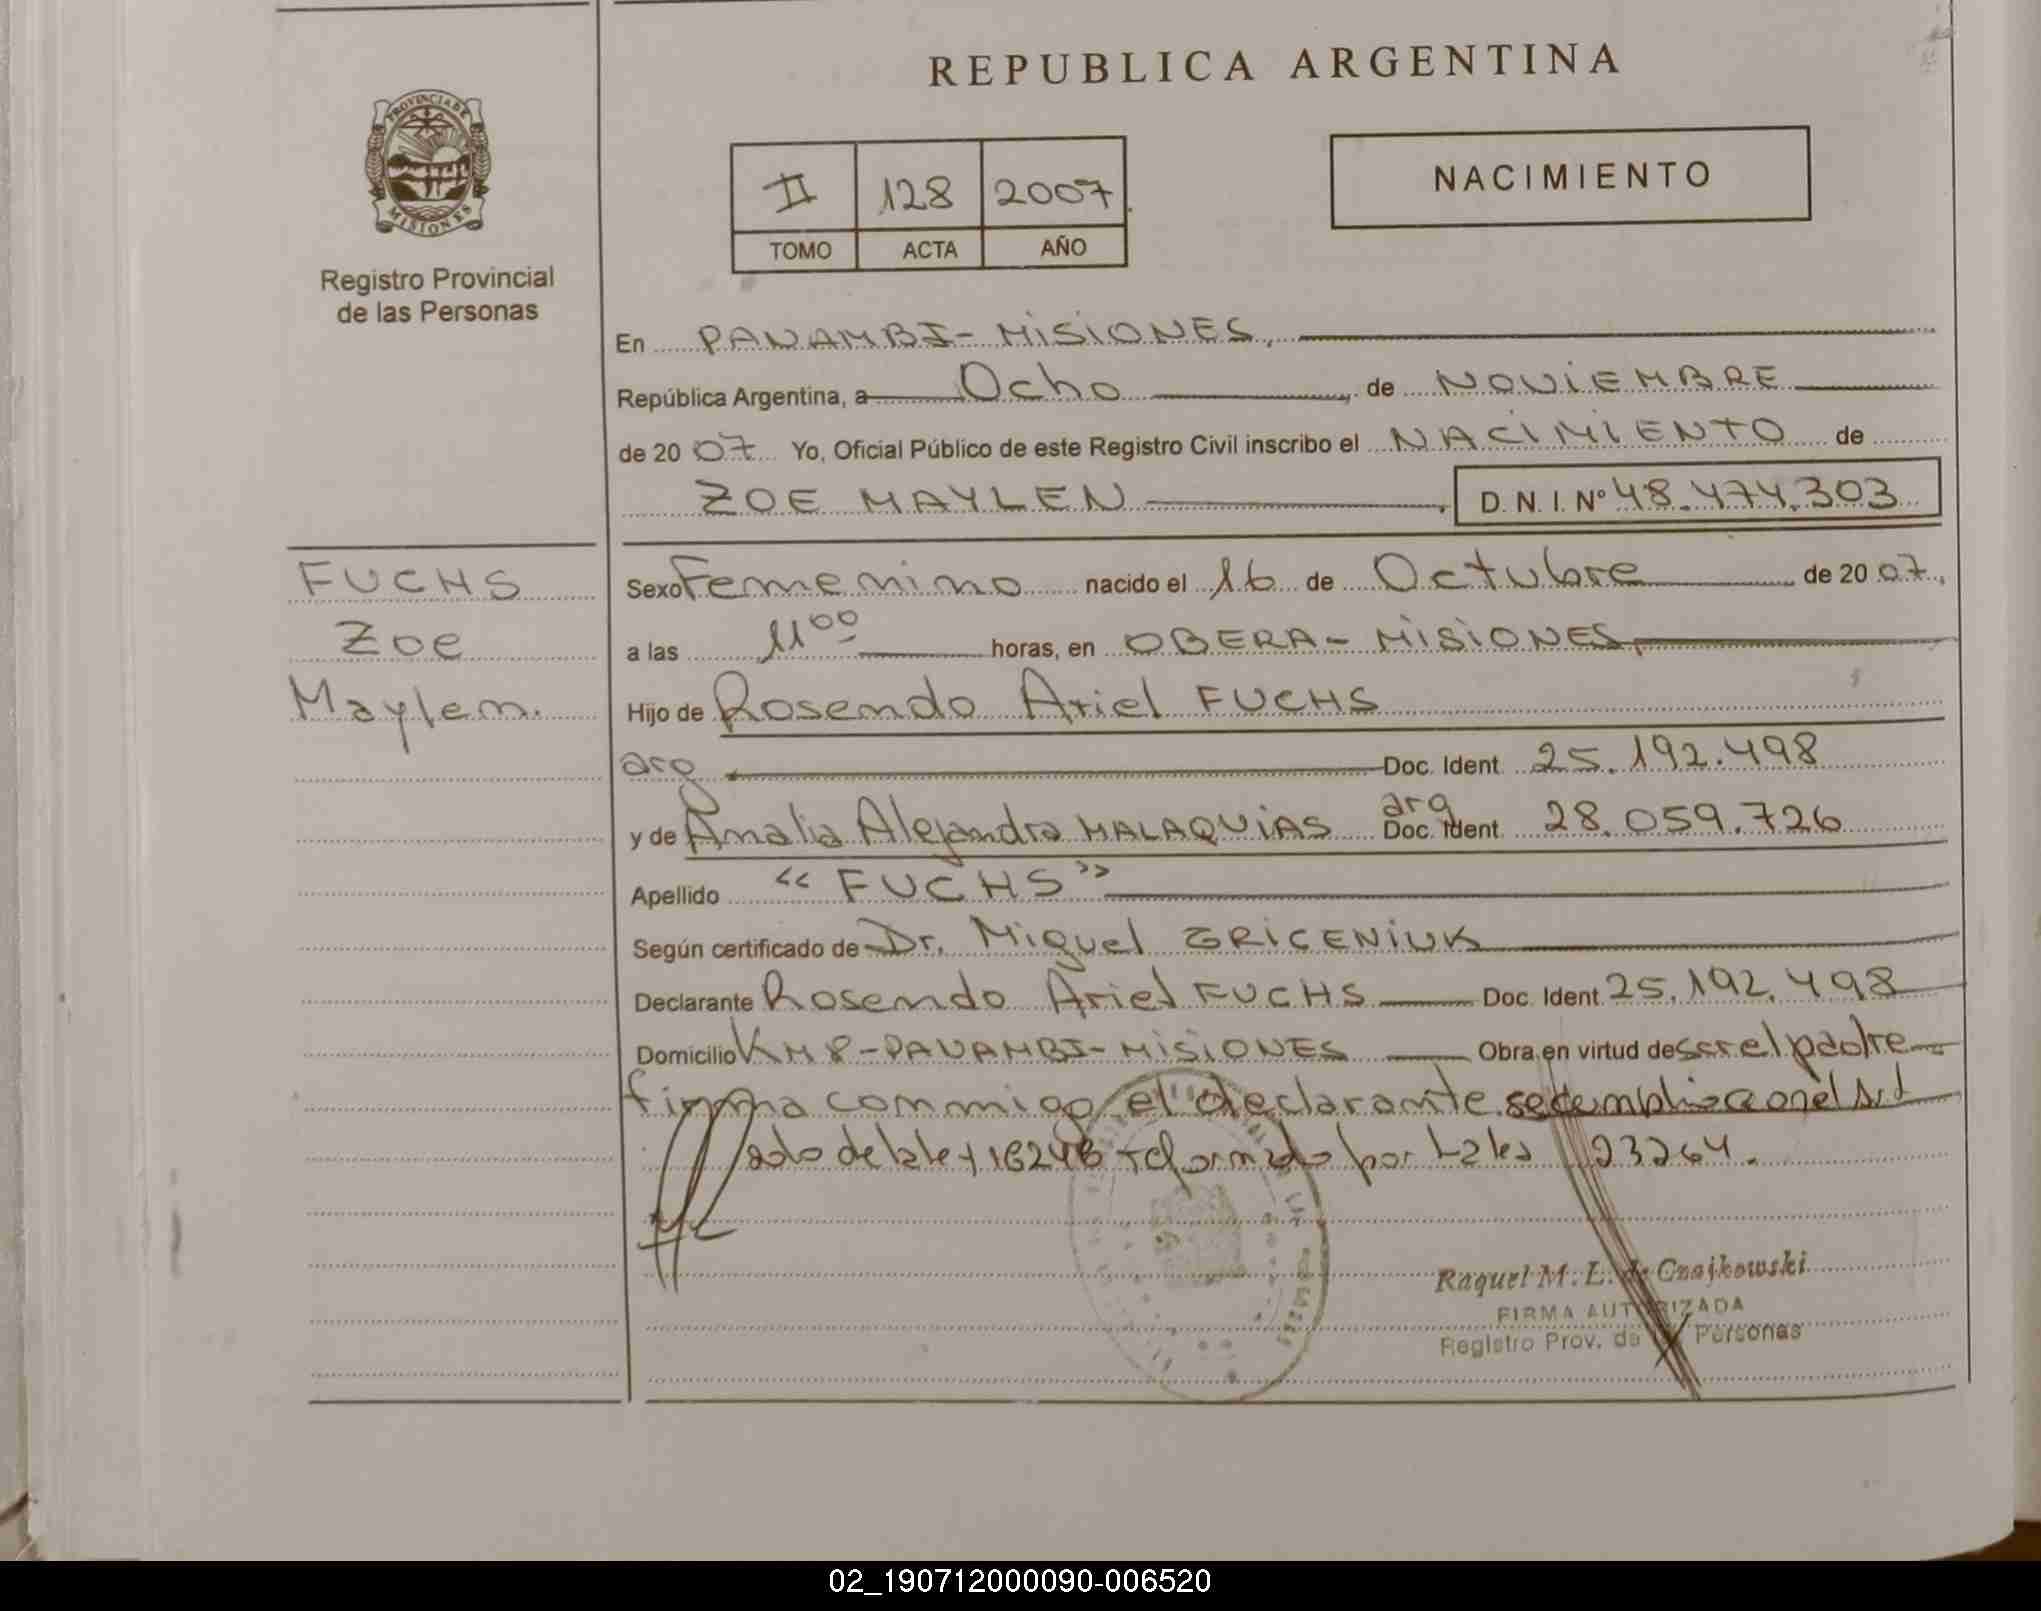 REPUBLICA ARGENTINA
PROVINCIA DE
MISIONES
Registro Provincial
de las Personas
II 128 2007
TOMO ACTA AÑO
NACIMIENTO
En PANAMBI - MISIONES,
República Argentina, a Ocho de NOVIEMBRE
de 2007 Yo, Oficial Público de este Registro Civil inscribo el NACIMIENTO de
ZOE MAYLEN, D. N. I. Nº 48.474.303
FUCHS
Zoe
Maylen.
Sexo Femenino nacido el 16 de Octubre de 2007,
a las 11 00 horas, en OBERA - MISIONES,
Hijo de Rosendo Ariel FUCHS
arg Doc. Ident. 25.192.498
y de Amalia Alejandra MALAQUIAS arg Doc. Ident. 28.059.726
Apellido "FUCHS"
Según certificado de Dr. Miguel GRICENIUK
Declarante Rosendo Ariel FUCHS Doc. Ident. 25.192.498
Domicilio KM 8 - PANAMBI - MISIONES Obra en virtud de ser el padre
firma conmigo el declarante se cumplio con el Art
2do de la ley 18248 reformado por la ley 23264.
Raquel M. L. de Czajkowski
FIRMA AUTORIZADA
Registro Prov. de las Personas
02_190712000090-006520